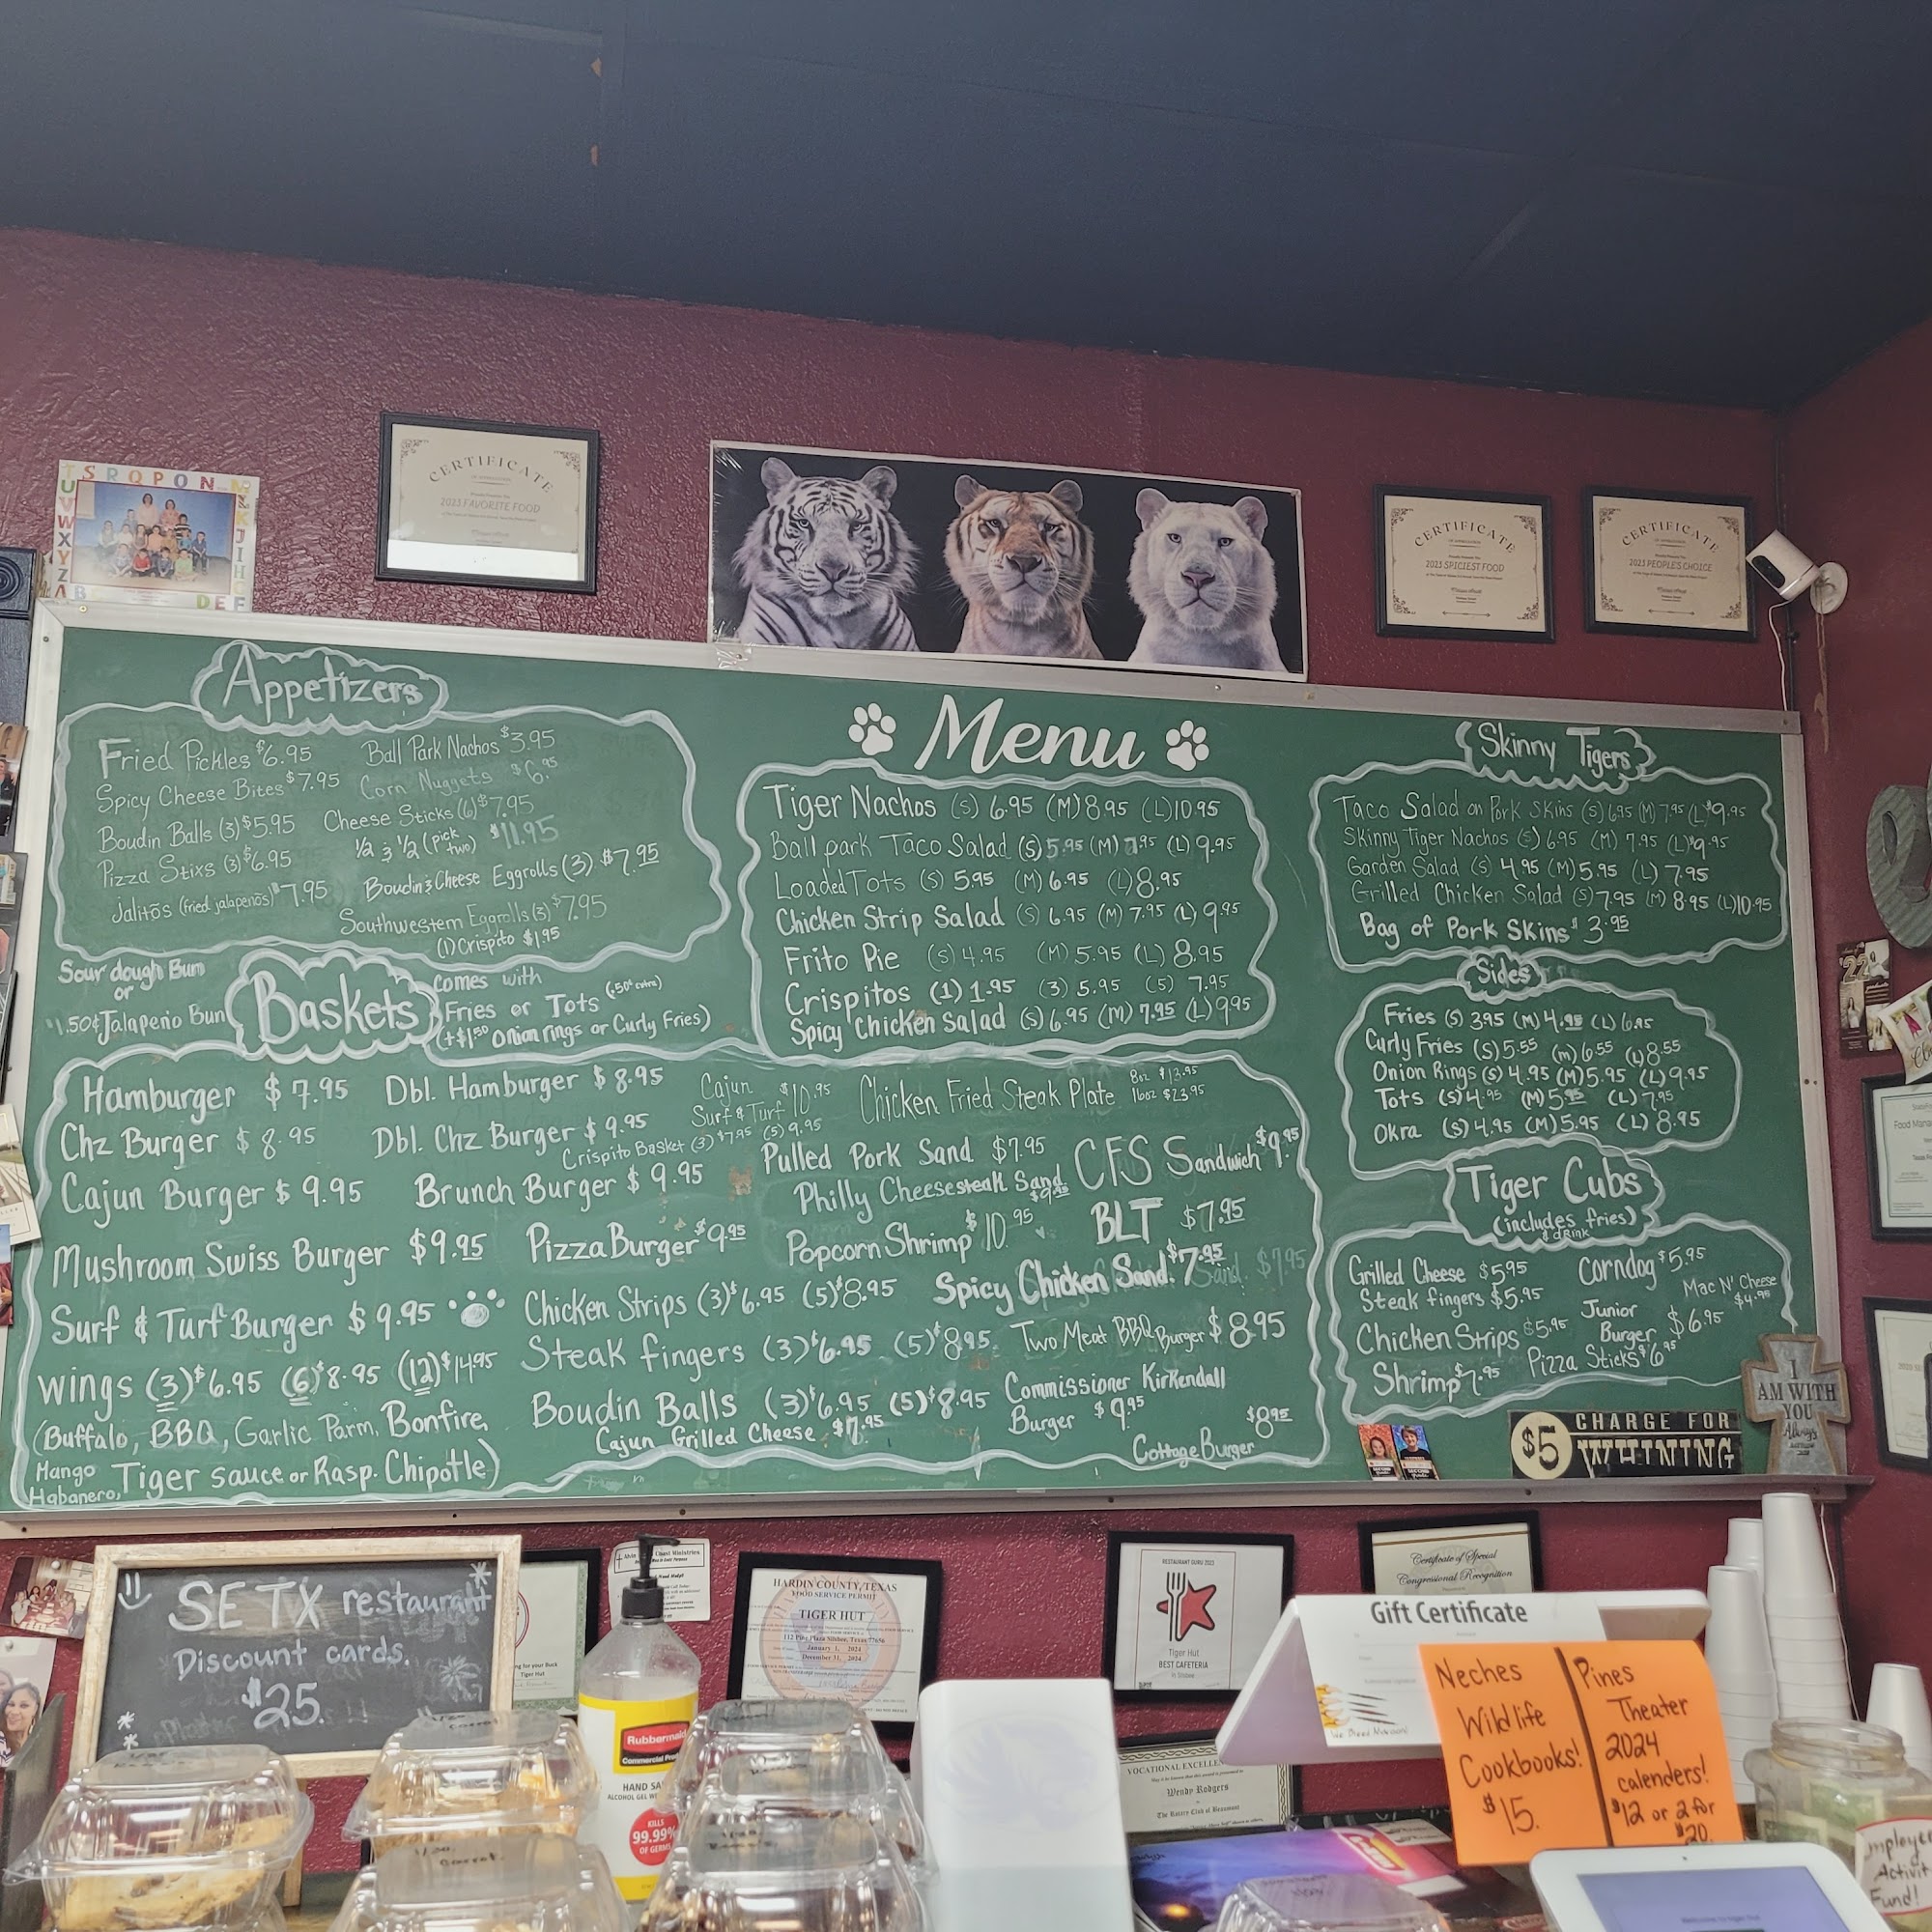 T S R Q P O N M
U L
V K
W J
X I
Y H
Z
A B D E F
CERTIFICATE
OF APPRECIATION
2023 FAVORITE FOOD
CERTIFICATE
OF APPRECIATION
2023 SPICIEST FOOD
CERTIFICATE
OF APPRECIATION
2023 PEOPLE'S CHOICE
Menu
Appetizers
Fried Pickles $6.95 Ball Park Nachos $3.95
Spicy Cheese Bites $7.95 Corn Nuggets $6.95
Boudin Balls (3) $5.95 Cheese Sticks (6) $7.95
Pizza Stixs (3) $6.95 1/2 & 1/2 (pick two) $11.95
Jalitos (fried jalapenos) $7.95 Boudin & Cheese Eggrolls (3) $7.95
Southwestern Eggrolls (3) $7.95
(1) Crispito $1.95
Tiger Nachos (S) 6.95 (M) 8.95 (L) 10.95
Ball park Taco Salad (S) 5.95 (M) 7.95 (L) 9.95
Loaded Tots (S) 5.95 (M) 6.95 (L) 8.95
Chicken Strip Salad (S) 6.95 (M) 7.95 (L) 9.95
Frito Pie (S) 4.95 (M) 5.95 (L) 8.95
Crispitos (1) 1.95 (3) 5.95 (5) 7.95
Spicy Chicken Salad (S) 6.95 (M) 7.95 (L) 9.95
Skinny Tigers
Taco Salad on Pork Skins (S) 6.95 (M) 7.95 (L) $9.95
Skinny Tiger Nachos (S) 6.95 (M) 7.95 (L) $9.95
Garden Salad (S) 4.95 (M) 5.95 (L) 7.95
Grilled Chicken Salad (S) 7.95 (M) 8.95 (L) 10.95
Bag of Pork Skins $3.95
Sides
Fries (S) 3.95 (M) 4.95 (L) 6.95
Curly Fries (S) 5.55 (M) 6.55 (L) 8.55
Onion Rings (S) 4.95 (M) 5.95 (L) 9.95
Tots (S) 4.95 (M) 5.95 (L) 7.95
Okra (S) 4.95 (M) 5.95 (L) 8.95
Tiger Cubs
(includes fries)
& dRink
Grilled Cheese $5.95 Corndog $5.95
Steak fingers $5.95 Mac N' Cheese $4.95
Chicken Strips $5.95 Junior Burger $6.95
Shrimp $7.95 Pizza Sticks $6.95
Sour dough Bun
or
1.50¢ Jalapeño Bun
Baskets
comes with
Fries or Tots (.50¢ extra)
(+$1.50 Onion rings or Curly Fries)
Hamburger $7.95 Dbl. Hamburger $8.95 Cajun Surf & Turf $10.95 Chicken Fried Steak Plate 8oz $13.95 16oz $23.95
Chz Burger $8.95 Dbl. Chz Burger $9.95
Crispito Basket (3) $7.95 (5) 9.95
Pulled Pork Sand $7.95 CFS Sandwich $9.95
Cajun Burger $9.95 Brunch Burger $9.95 Philly Cheesesteak Sand. $9.95
BLT $7.95
Mushroom Swiss Burger $9.95 Pizza Burger $9.95 Popcorn Shrimp $10.95
Spicy Chicken Sand. $7.95 Sand. $7.95
Surf & Turf Burger $9.95 Chicken Strips (3) $6.95 (5) $8.95
Steak fingers (3) $6.95 (5) $8.95 Two Meat BBQ Burger $8.95
wings (3) $6.95 (6) $8.95 (12) $14.95
Boudin Balls (3) $6.95 (5) $8.95 Commissioner Kirkendall
Burger $9.95
(Buffalo, BBQ, Garlic Parm, Bonfire,
Mango Habanero, Tiger sauce or Rasp. Chipotle)
Cajun Grilled Cheese $7.95
$8.95
Cottage Burger
$5 CHARGE FOR
WHINING
I
AM WITH
YOU
Always
'22
SETX restaurant
Discount cards.
$25.
HARDIN COUNTY, TEXAS
FOOD SERVICE PERMIT
TIGER HUT
112 Pine Plaza Silsbee, Texas 77656
January 1, 2024
December 31, 2024
Tiger Hut
RESTAURANT GURU 2023
Tiger Hut
BEST CAFETERIA
in Silsbee
Certificate of Special
Congressional Recognition
Gift Certificate
Neches
Wildlife
Cookbooks!
$15.
Pines
Theater
2024
calenders!
$12 or 2 for
$20.
Rubbermaid
Commercial
HAND
KILLS
99.99%
OF GERMS
Wendy Rodgers
The Rotary Club of Beaumont
carrot
Carrot
Activit
Fund!